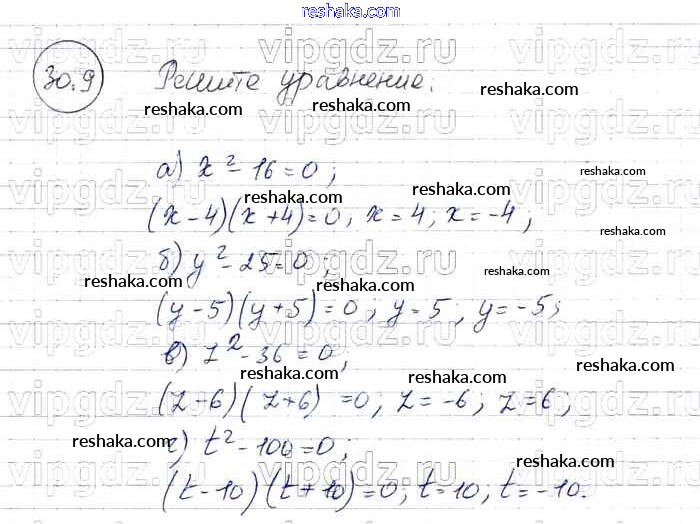 reshaka.com
vipgdz.ru vipgdz.ru
30.9 Решите уравнение:
reshaka.com reshaka.com reshaka.com
vipgdz.ru vipgdz.ru
reshaka.com
а) x² - 16 = 0;
reshaka.com reshaka.com
(x-4)(x+4)=0; x=4; x=-4;
vipgdz.ru vipgdz.ru
б) y² - 25 = 0;
reshaka.com reshaka.com reshaka.com
(y-5)(y+5)=0; y=5, y=-5;
vipgdz.ru vipgdz.ru
в) z² - 36 = 0,
reshaka.com reshaka.com
(z-6)(z+6)=0, z=-6; z=6;
vipgdz.ru vipgdz.ru
reshaka.com reshaka.com
г) t² - 100 = 0;
vipgdz.ru vipgdz.ru
reshaka.com
(t-10)(t+10)=0; t=10, t=-10.
reshaka.com reshaka.com